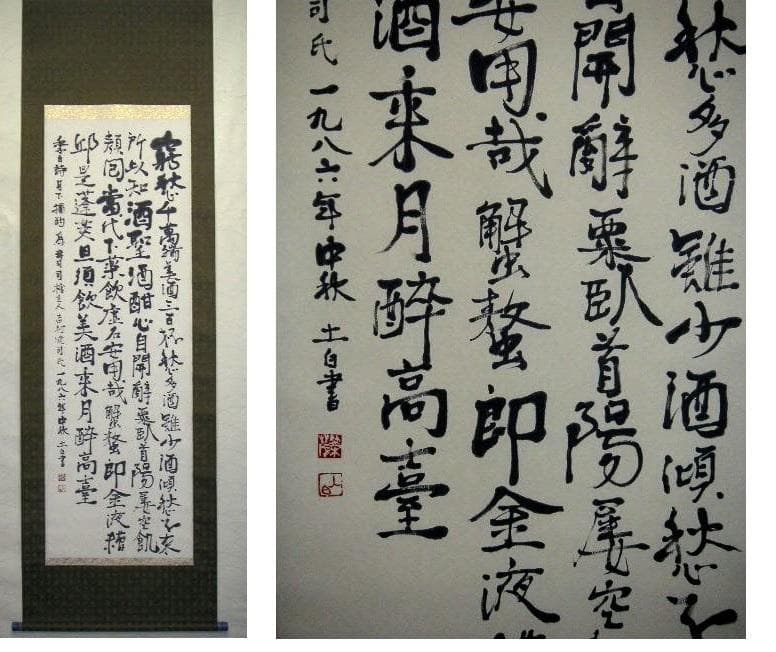 窮愁千萬端美酒三百杯愁多酒雖少酒傾愁不來
所以知酒聖酒酣心自開辭粟臥首陽屢空飢
顏回當代不樂飲虛名安用哉蟹螯即金液糟
邱是蓬萊且須飲美酒乘月醉高臺
李白詩月下獨酌為 主人 司氏 一九八六年中秋 土白書
愁多酒雖少酒傾愁不
自開辭粟臥首陽屢空
安用哉蟹螯即金液
酒乘月醉高臺
司氏 一九八六年中秋 土白書